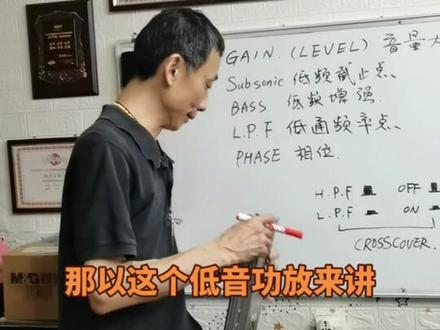 GAIN. (LEVEL) 音量大
Subsonic 低频截止点.
BASS 低频增强.
L.P.F 低通频率点.
PHASE 相位.
H.P.F OFF
L.P.F ON
CROSSCOVER.
M&G
那以这个低音功放来讲